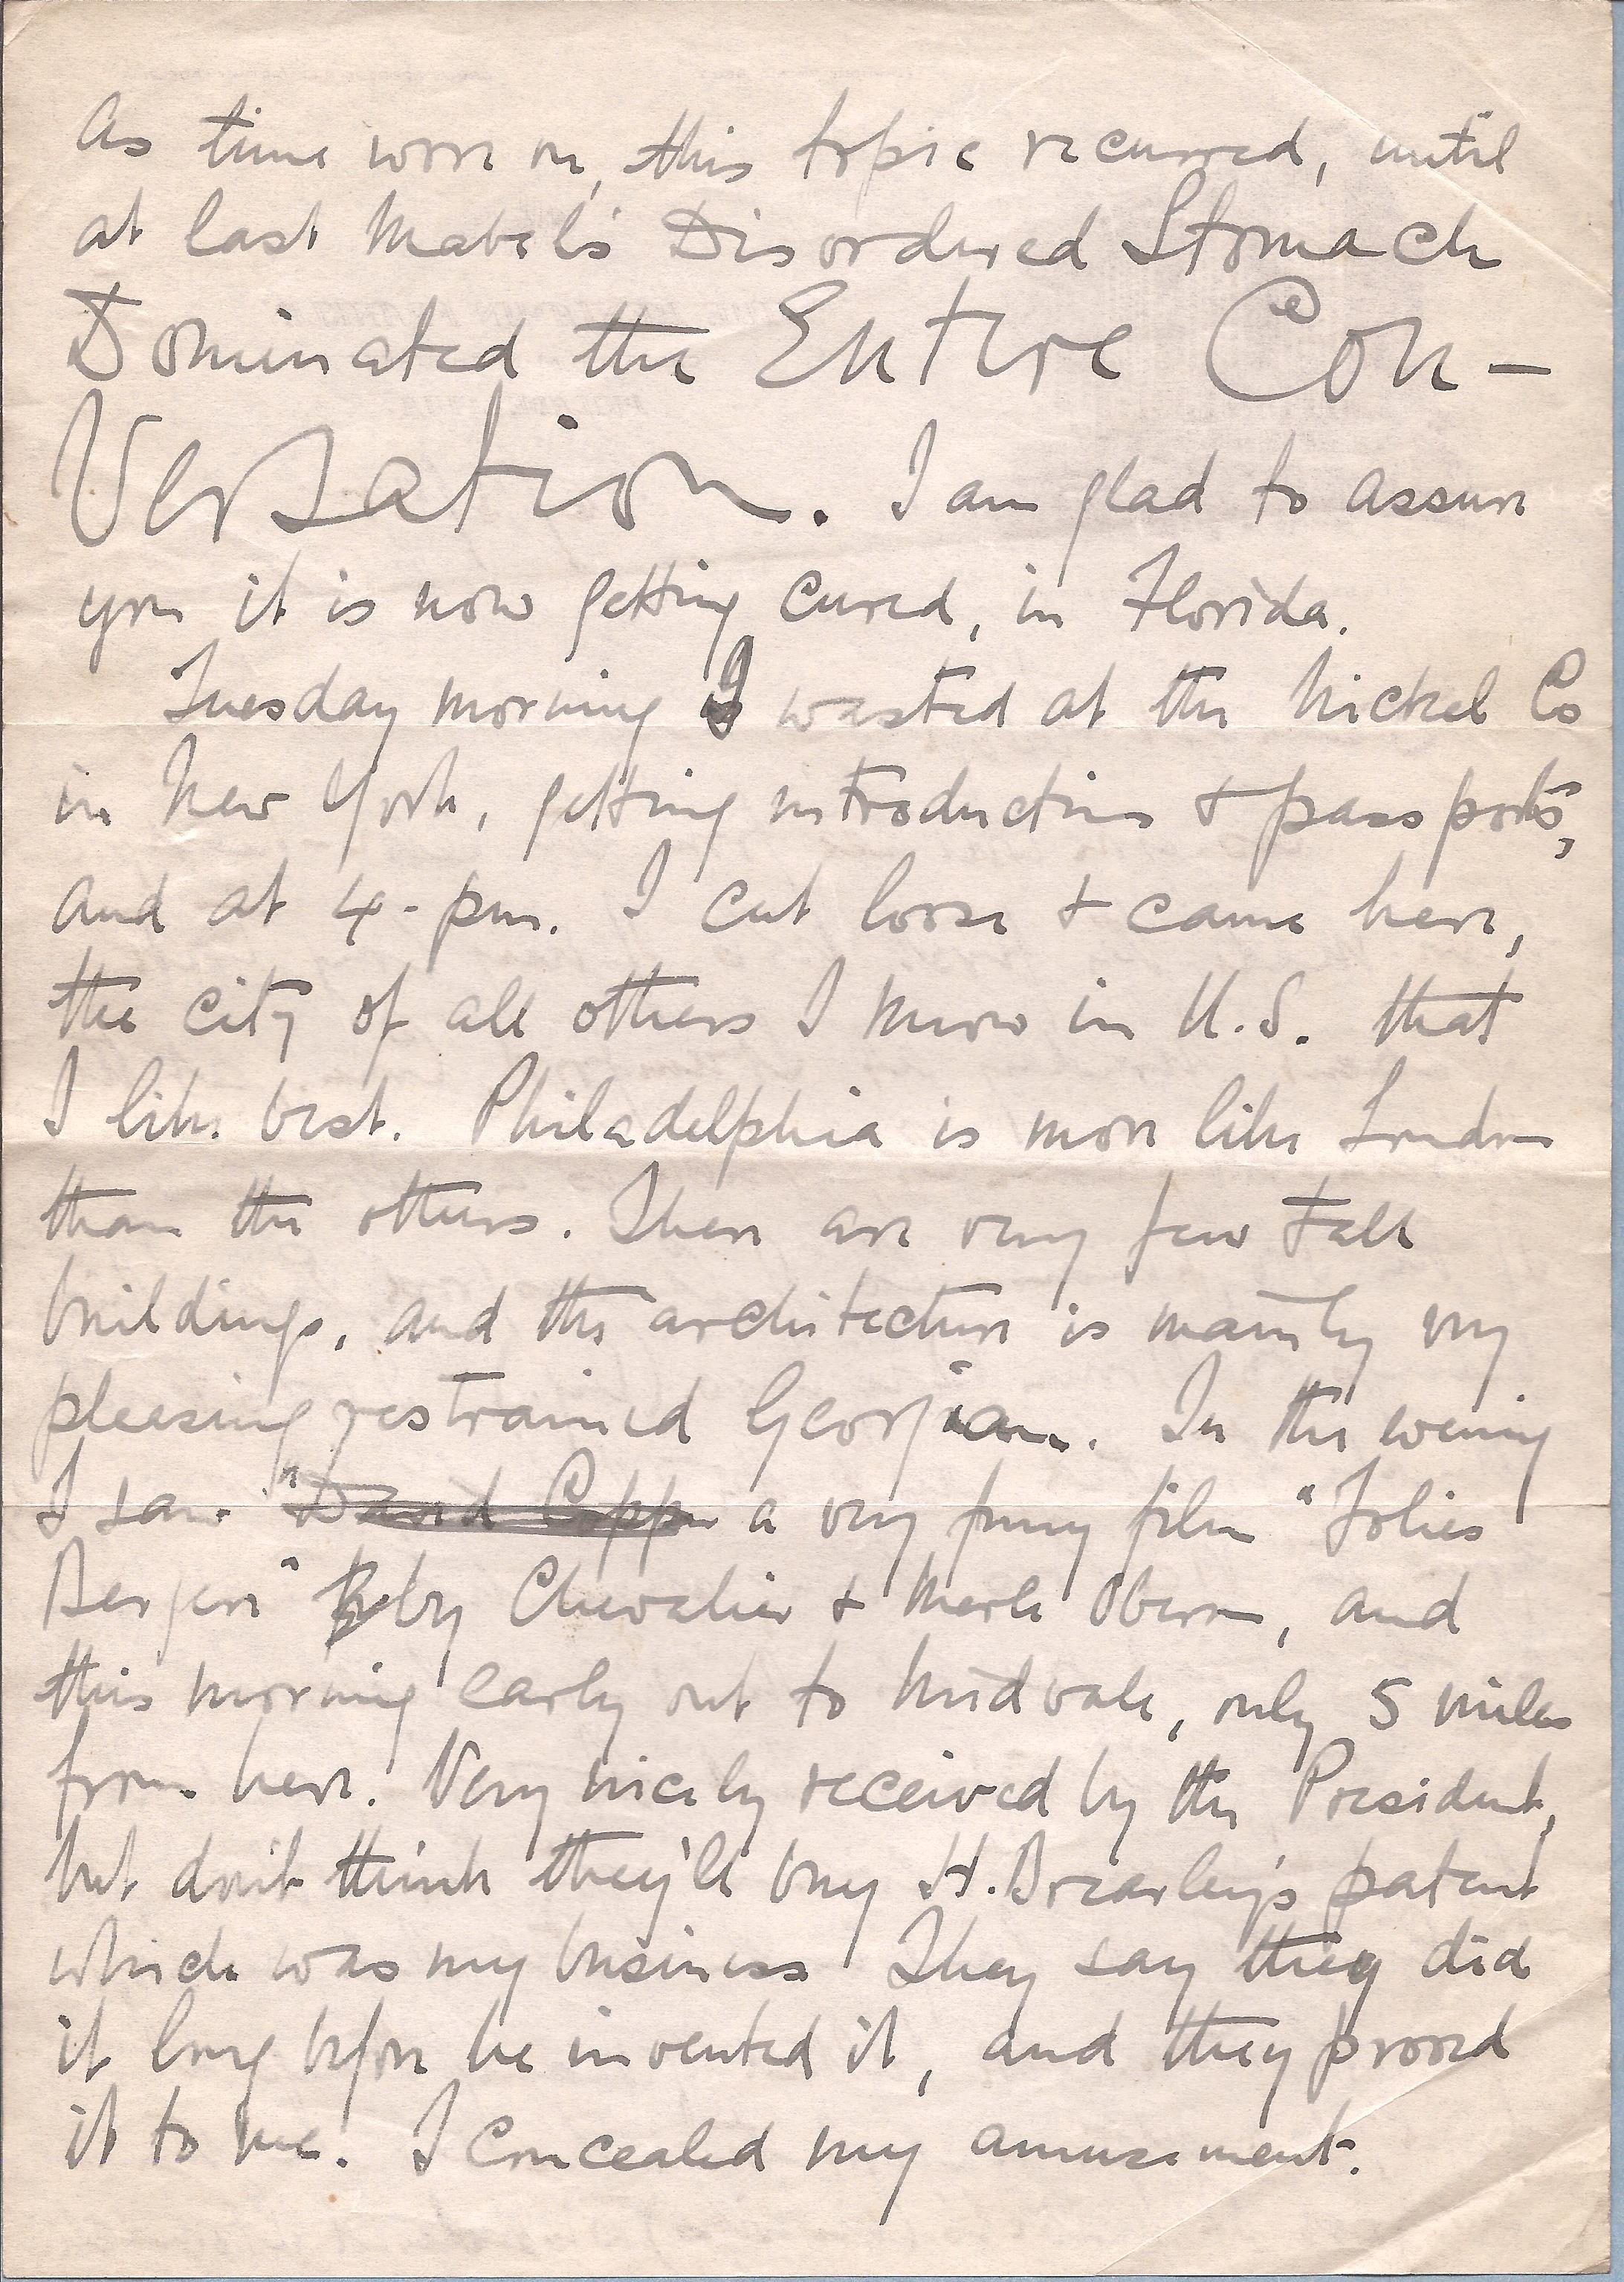 As time wore on, this topic recurred, until
at last Mabel's Disordered Stomach
Dominated the Entire Con-
Versation. I am glad to assure
you it is now getting cured, in Florida.
Tuesday morning I wasted at the Nickel Co
in New York, getting introductions & passports,
and at 4-pm. I cut loose & came here,
the city of all others I know in U.S. that
I like best. Philadelphia is more like London
than the others. There are very few tall
buildings, and the architecture is mainly very
pleasing restrained Georgian. In the evening
I saw "David Coppe a very funny film "Folies
Bergere" by Chevalier & Merle Oberon, and
this morning early out to Midvale, only 5 miles
from here. Very nicely received by the President,
but don't think they'll buy H. Brearley's patent
which was my business They say they did
it long before he invented it, and they proved
it to me. I concealed my amusement.